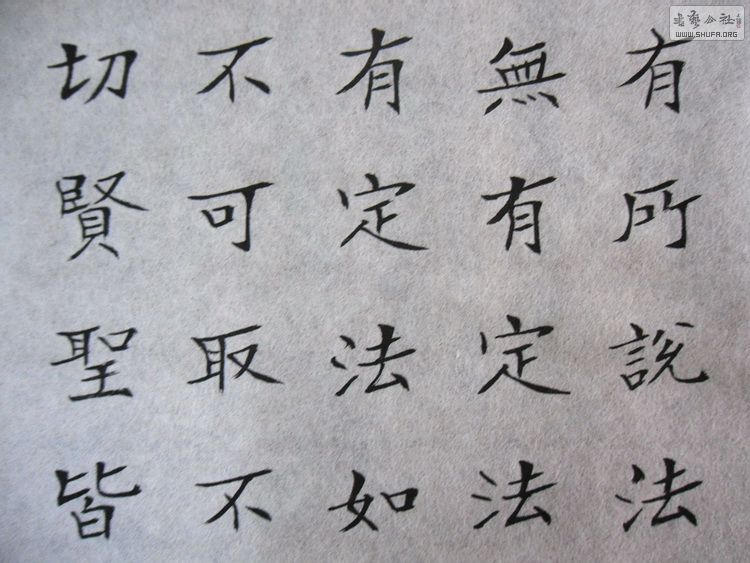 有所說法
無有定法
有定法如
不可取不
切賢聖皆
書藝公社
WWW.SHUFA.ORG